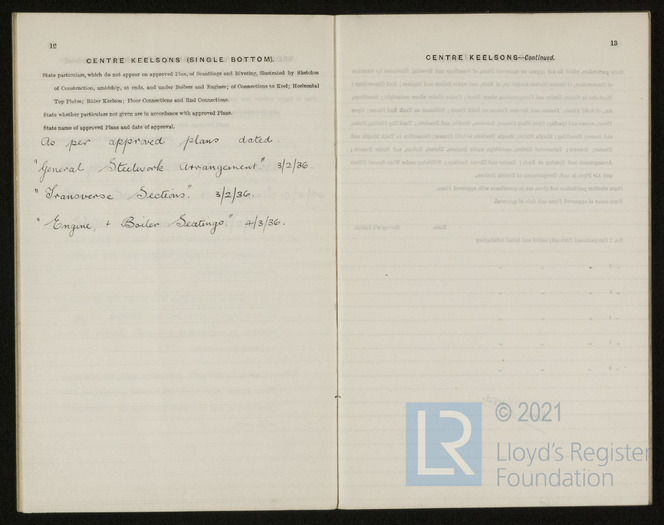 12
CENTRE KEELSONS (SINGLE BOTTOM).
State particulars, which do not appear on approved Plan, of Scantlings and Riveting, illustrated by Sketches
of Construction, amidship, at ends, and under Boilers and Engines; of Connections to Keel; Horizontal
Top Plates; Rider Keelson; Floor Connections and End Connections.
State whether particulars not given are in accordance with approved Plans.
State name of approved Plans and date of approval.
As per approved plans dated.
"General Steelwork Arrangement" 3/2/36
"Transverse Sections". 3/2/36.
"Engine, + Boiler Seatings." 4/3/36.
13
CENTRE KEELSONS—Continued.
LR
© 2021
Lloyd's Register
Foundation